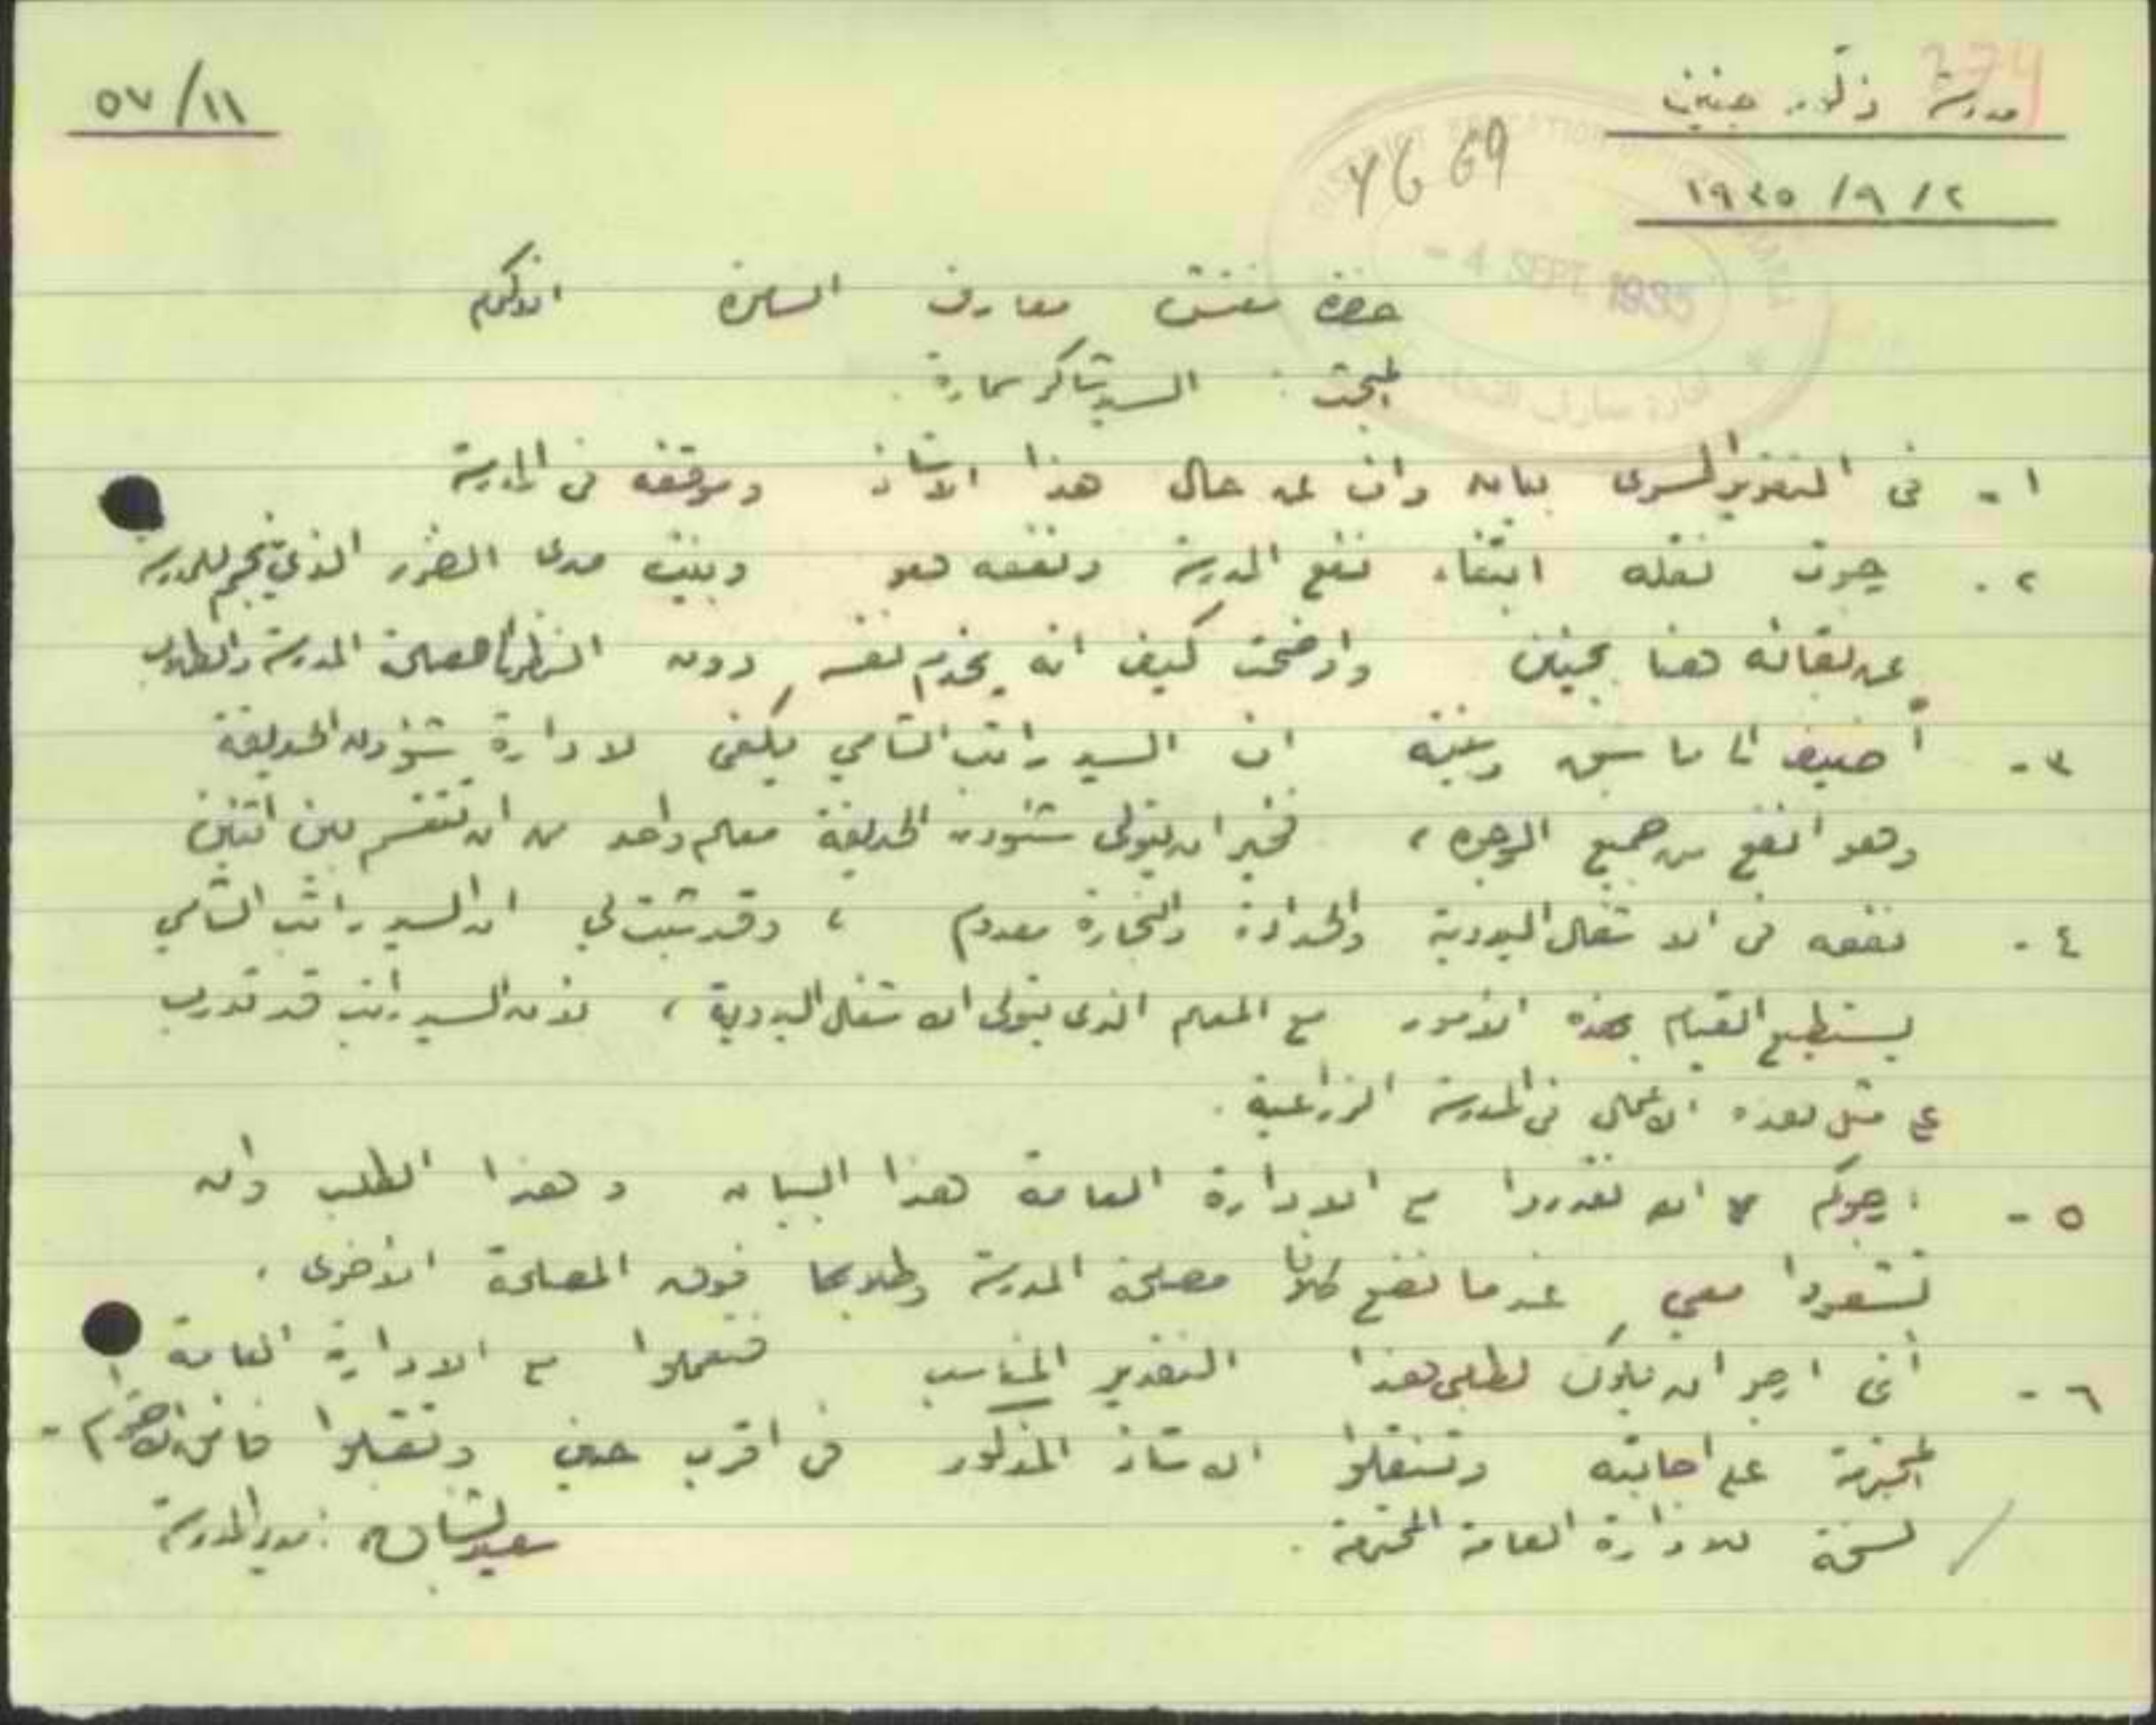 274
مدرسة ذكور جنين
٥٧/١١
٢/٩/١٩٣٥
4669
DISTRICT EDUCATION
- 4 SEPT. 1935
ادارة معارف
حضرة مفتش معارف السامرة الاكرم
المبحث : السيد شاكر سمارة .
١ - في التقرير السري بيان واف عن حال هذا الاستاذ وموقفه في المدرسة
٢ - رجوت نقله ابتغاء نفع المدرسة ونفعه هو وبينت مدى الضرر الذي ينجم للمدرسة
عن بقائه هنا بجنين واوضحت كيف انه يخدم نفسه دون النظر الى مصلحة المدرسة والطلاب
٣ - أضيف الى ما سبق وبينته ان السيد راتب الشامي يكفي لادارة شؤون الحديقة
وهو انفع من جميع الوجوه ، فخير ان يتولى شئون الحديقة معلم واحد من ان تنقسم بين اثنين
٤ - نفعه في الاشغال اليدوية والحدادة والنجارة معدوم ، وقد ثبت لي ان السيد راتب الشامي
يستطيع القيام بهذه الامور مع المعلم الذي يتولى الاشغال اليدوية ، لان السيد راتب قد تدرب
على مثل هذه الاعمال في المدرسة الزراعية .
٥ - ارجوكم ان تقدروا مع الادارة العامة هذا البيان وهذا الطلب وان
تشعروا معي عندما نضع كلانا مصلحة المدرسة وطلابها فوق المصلحة الاخرى .
٦ - اني ارجو ان يكون لطلبي هذا التقدير المناسب فتعملوا مع الادارة العامة
المحترمة على اجابته وتنقلوا الاستاذ المذكور في اقرب حين وتقبلوا فائق الاحترام -
سعيد : مدير المدرسة
نسخة للادارة العامة المحترمة .